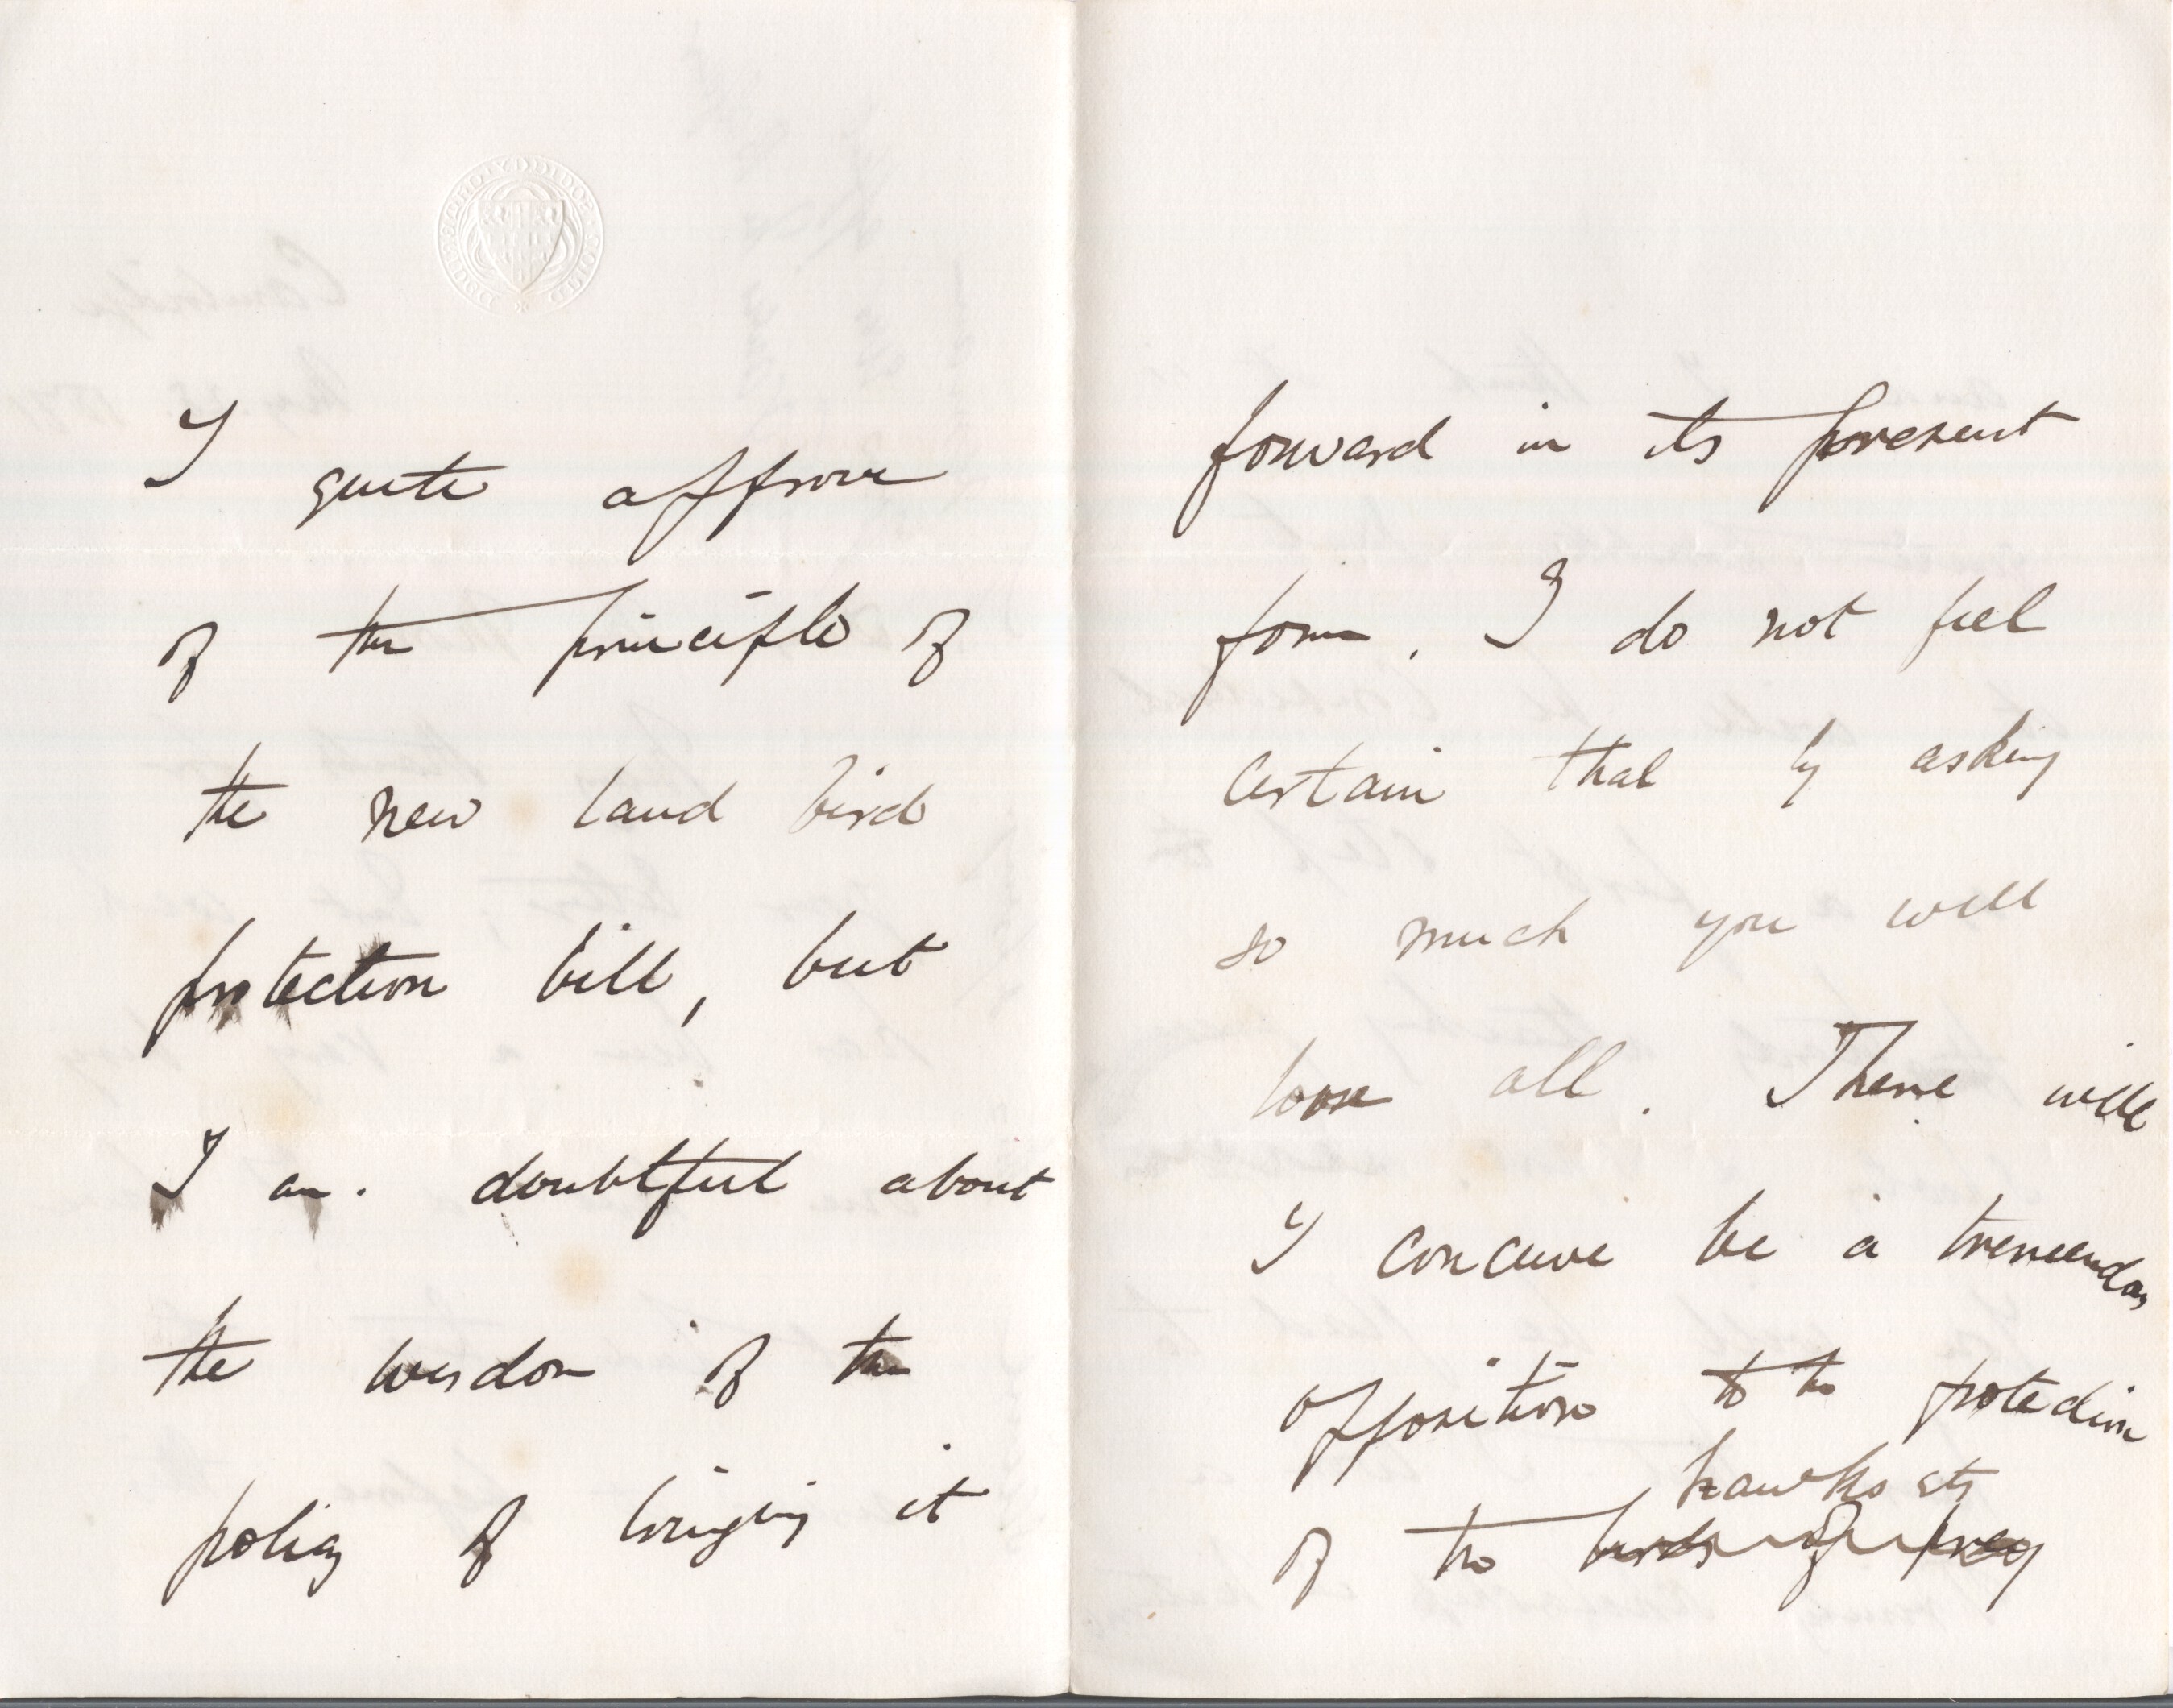 I quite approve
of the principle of
the new land bird
protection bill, but
I am. doubtful about
the wisdom of the
policy of bringing it
forward in its present
form. I do not feel
certain that by asking
so much you will
loose all. There will
I conceive be a tremendous
opposition to the protection
hawks etc
of the birds of prey